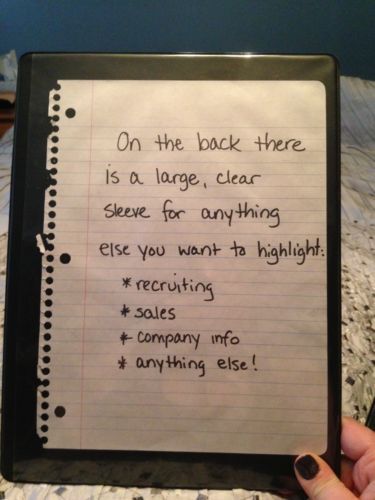 On the back there
is a large, clear
sleeve for anything
else you want to highlight:
* recruiting
* sales
* company info
* anything else!